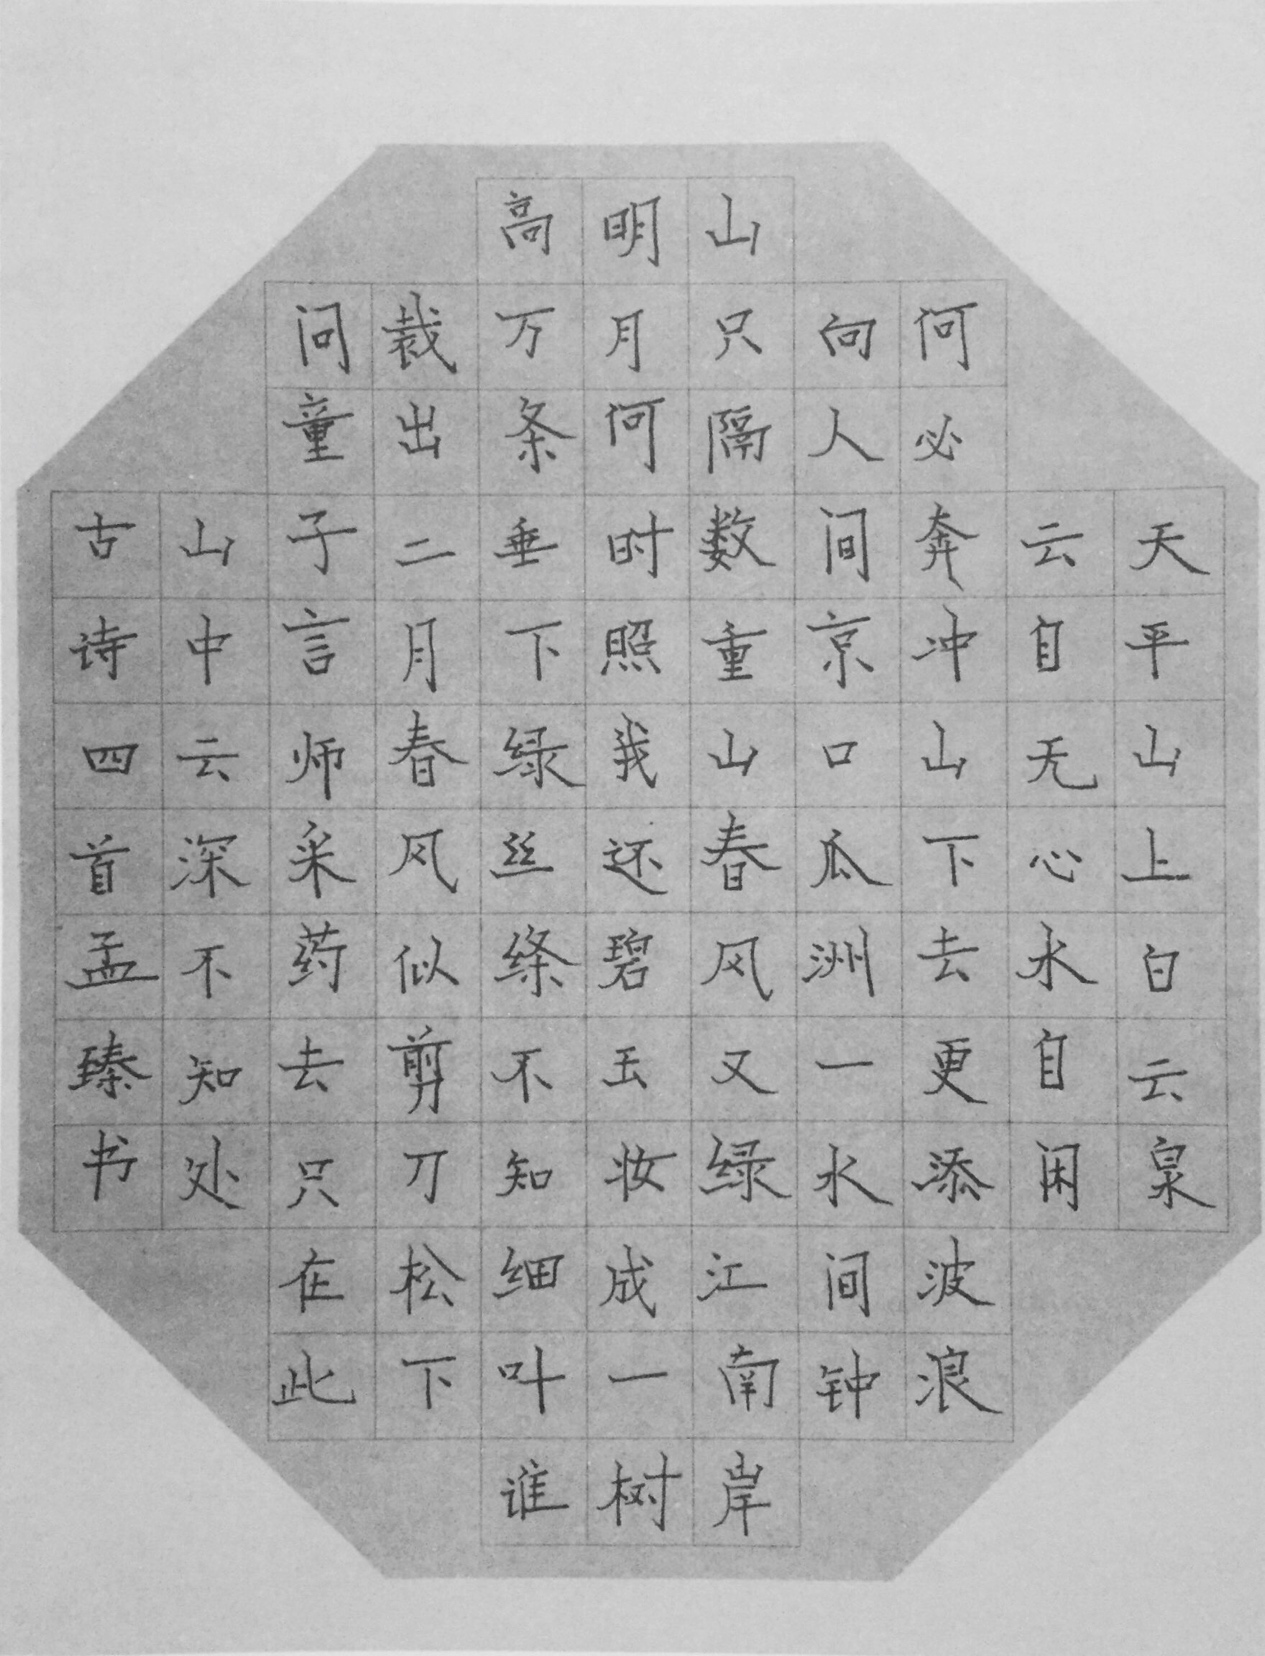 天平山上白云泉
云自无心水自闲
何必奔冲山下去更添波浪
向人间京口瓜洲一水间钟
山只隔数重山春风又绿江南岸
明月何时照我还碧玉妆成一树
高万条垂下绿丝绦不知细叶谁
裁出二月春风似剪刀松下
问童子言师采药去只在此
山中云深不知处
古诗四首孟臻书